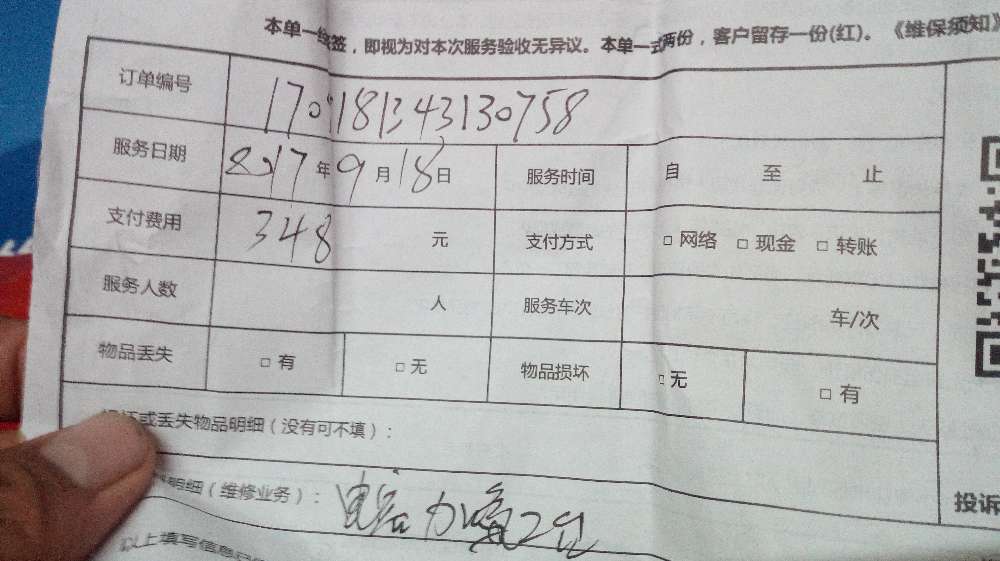 本单一经签，即视为对本次服务验收无异议。本单一式两份，客户留存一份(红)。《维保须知》
订单编号 1709181343130758
服务日期 2017年9月18日 服务时间 自 至 止
支付费用 348 元 支付方式 □ 网络 □ 现金 □ 转账
服务人数 人 服务车次 车/次
物品丢失 □ 有 □ 无 物品损坏 □ 无 □ 有
或丢失物品明细（没有可不填）：
明细（维修业务）： 加氟2
以上填写信息已
投诉